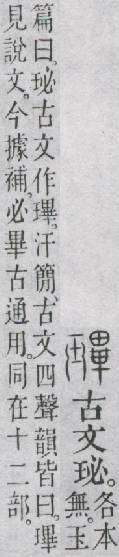 㻫古文珌。
各本
無。玉
篇曰。珌古文作㻫。汗簡、古文四聲韻皆曰。㻫
見說文。今據補。必畢古通用。同在十二部。